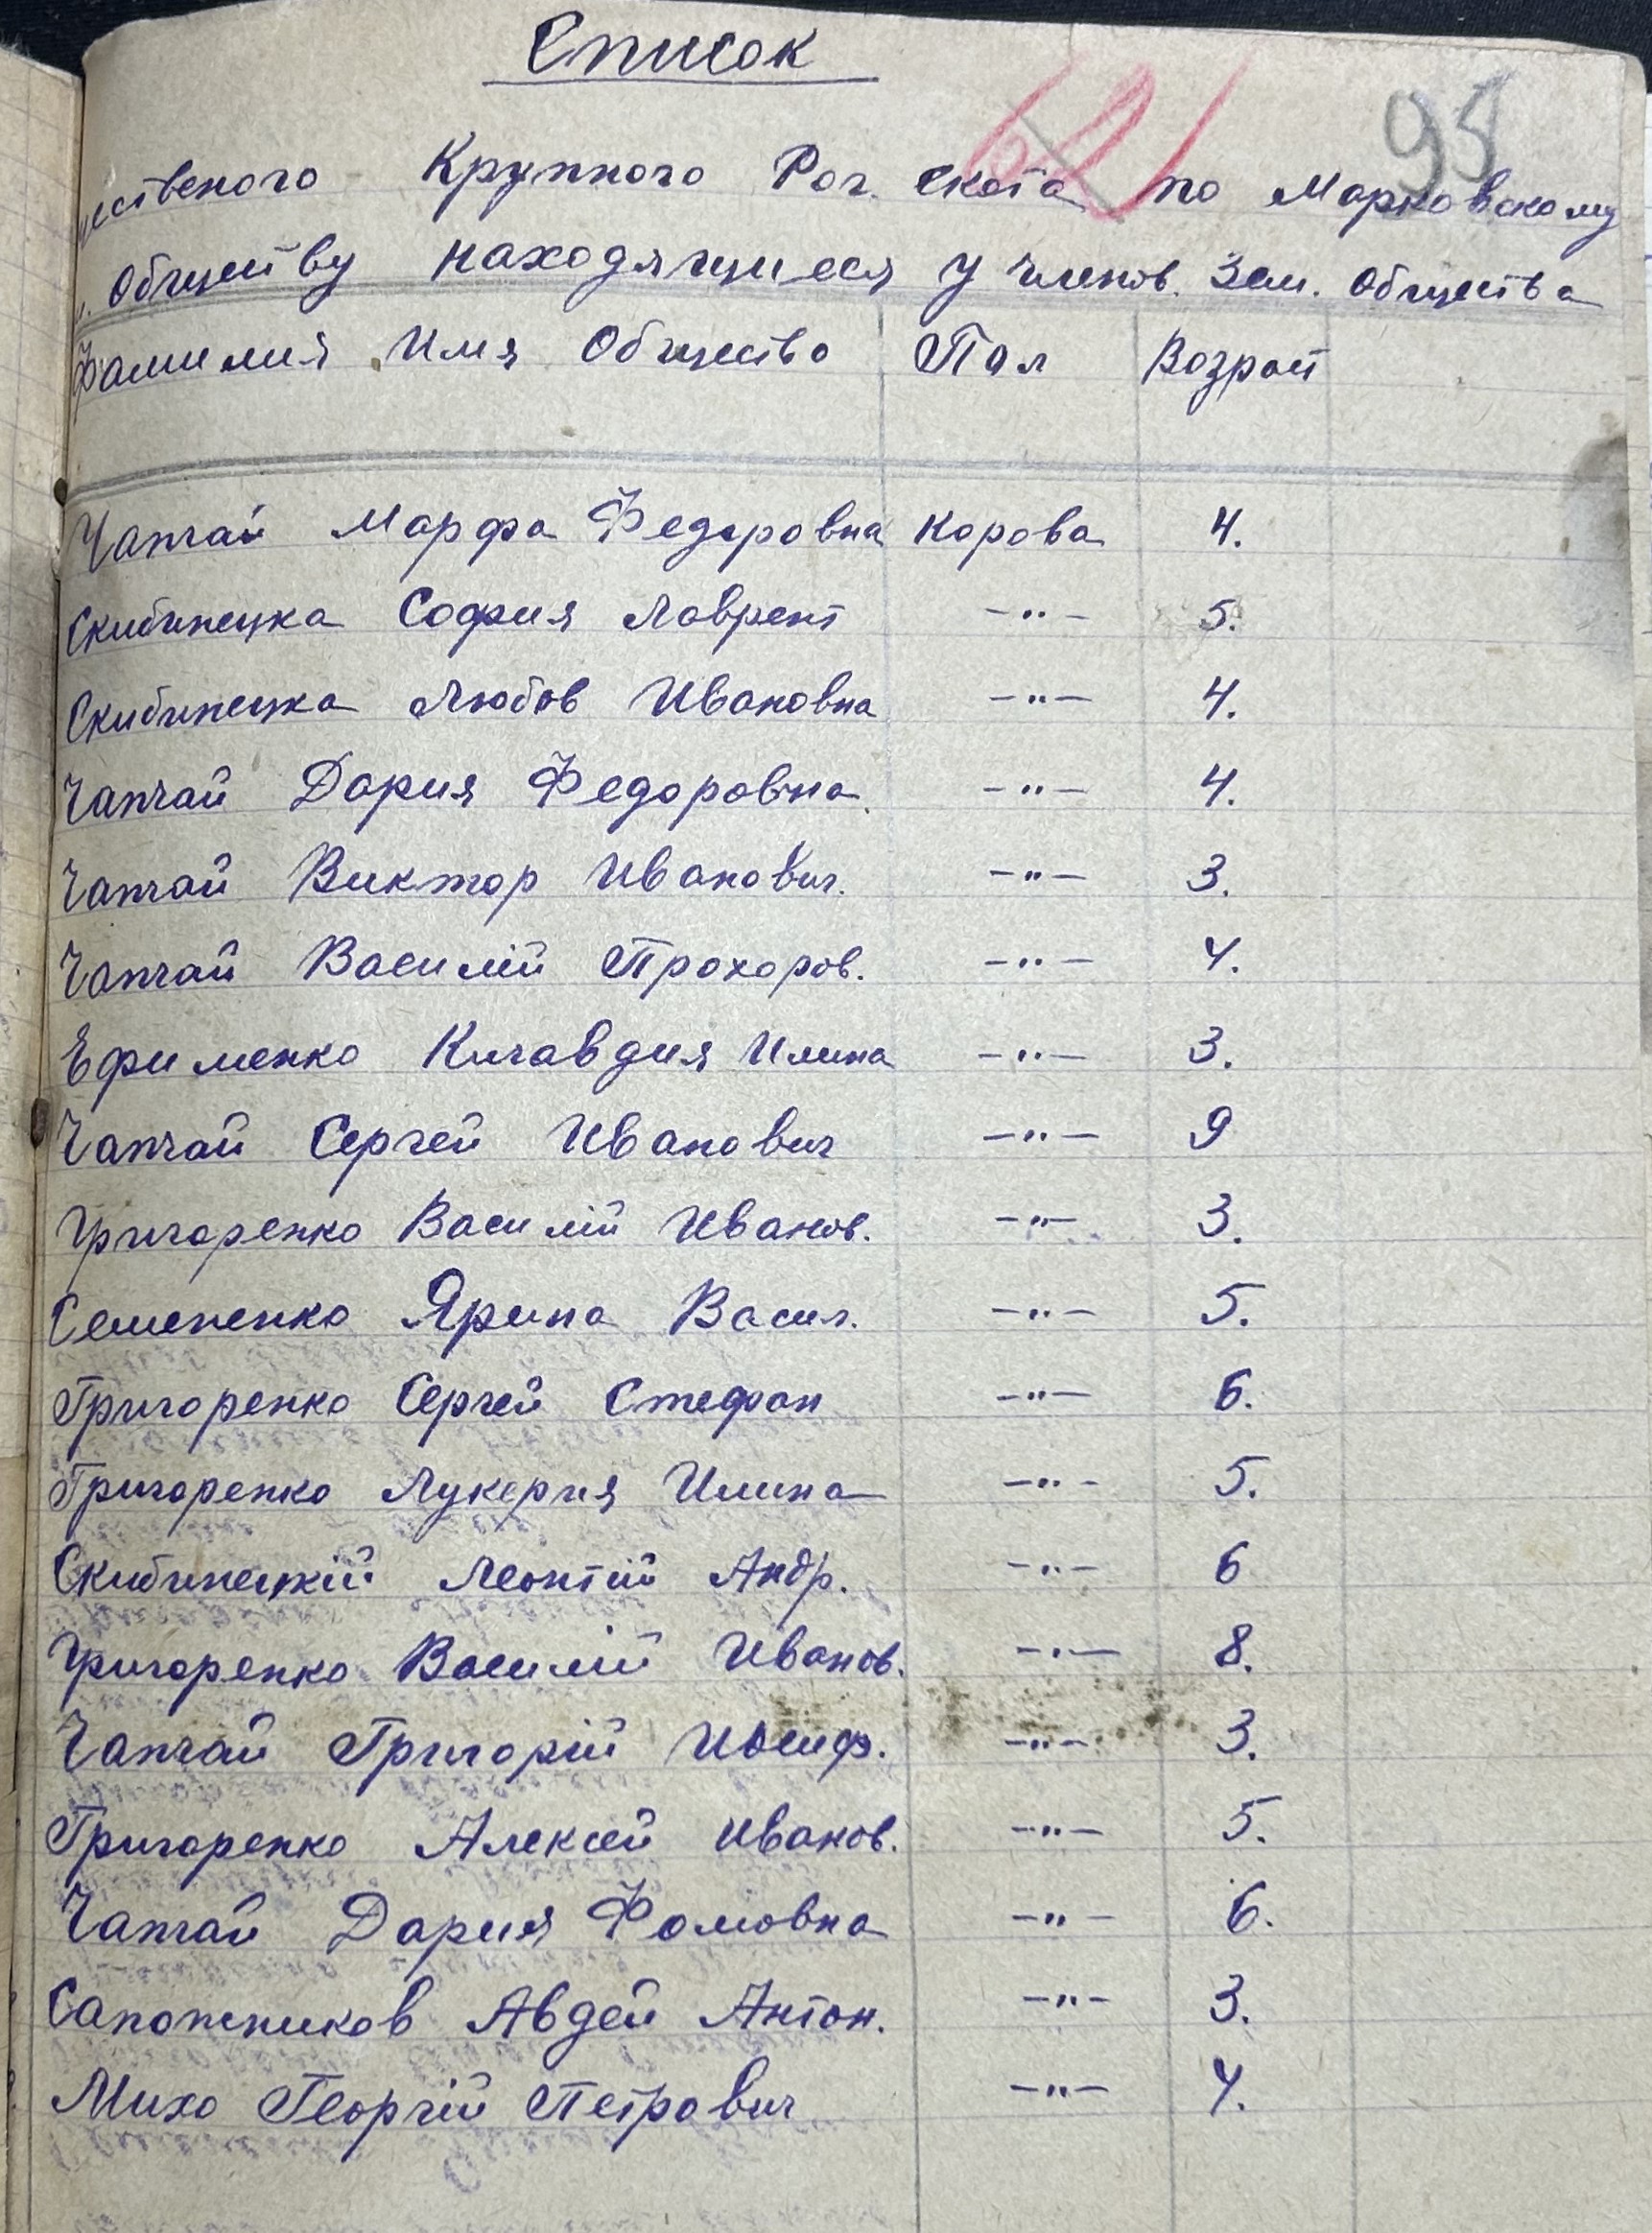 Список
621 95
ественого Крупного Рог. скота по Марковскому
. Обществу находящиеся у членов. Зем. Общества
Фамилия Имя Общество Пол Возраст
Чапчай Марфа Федоровна Корова 4.
Скибинецка София Лаврент -"- 5.
Скибинецка Любов Ивановна -"- 4.
Чапчай Дария Федоровна -"- 4.
Чапчай Виктор Иванович. -"- 3.
Чапчай Василий Прохоров. -"- 4.
Ефименко Клавдия Илина -"- 3.
Чапчай Сергей Иванович -"- 9
Григоренко Василій Иванов. -"- 3.
Семененко Ярина Васил. -"- 5.
Григоренко Сергей Стефан -"- 6.
Григоренко Лукерия Илина -"- 5.
Скибинецкій Леонтій Андр. -"- 6
Григоренко Василій Иванов. -"- 8.
Чапчай Григорій Иосиф. -"- 3.
Григоренко Алексей Иванов. -"- 5.
Чапчай Дария Фомовна -"- 6.
Сапожников Авдей Антон. -"- 3.
Михо Георгій Петрович -"- 4.